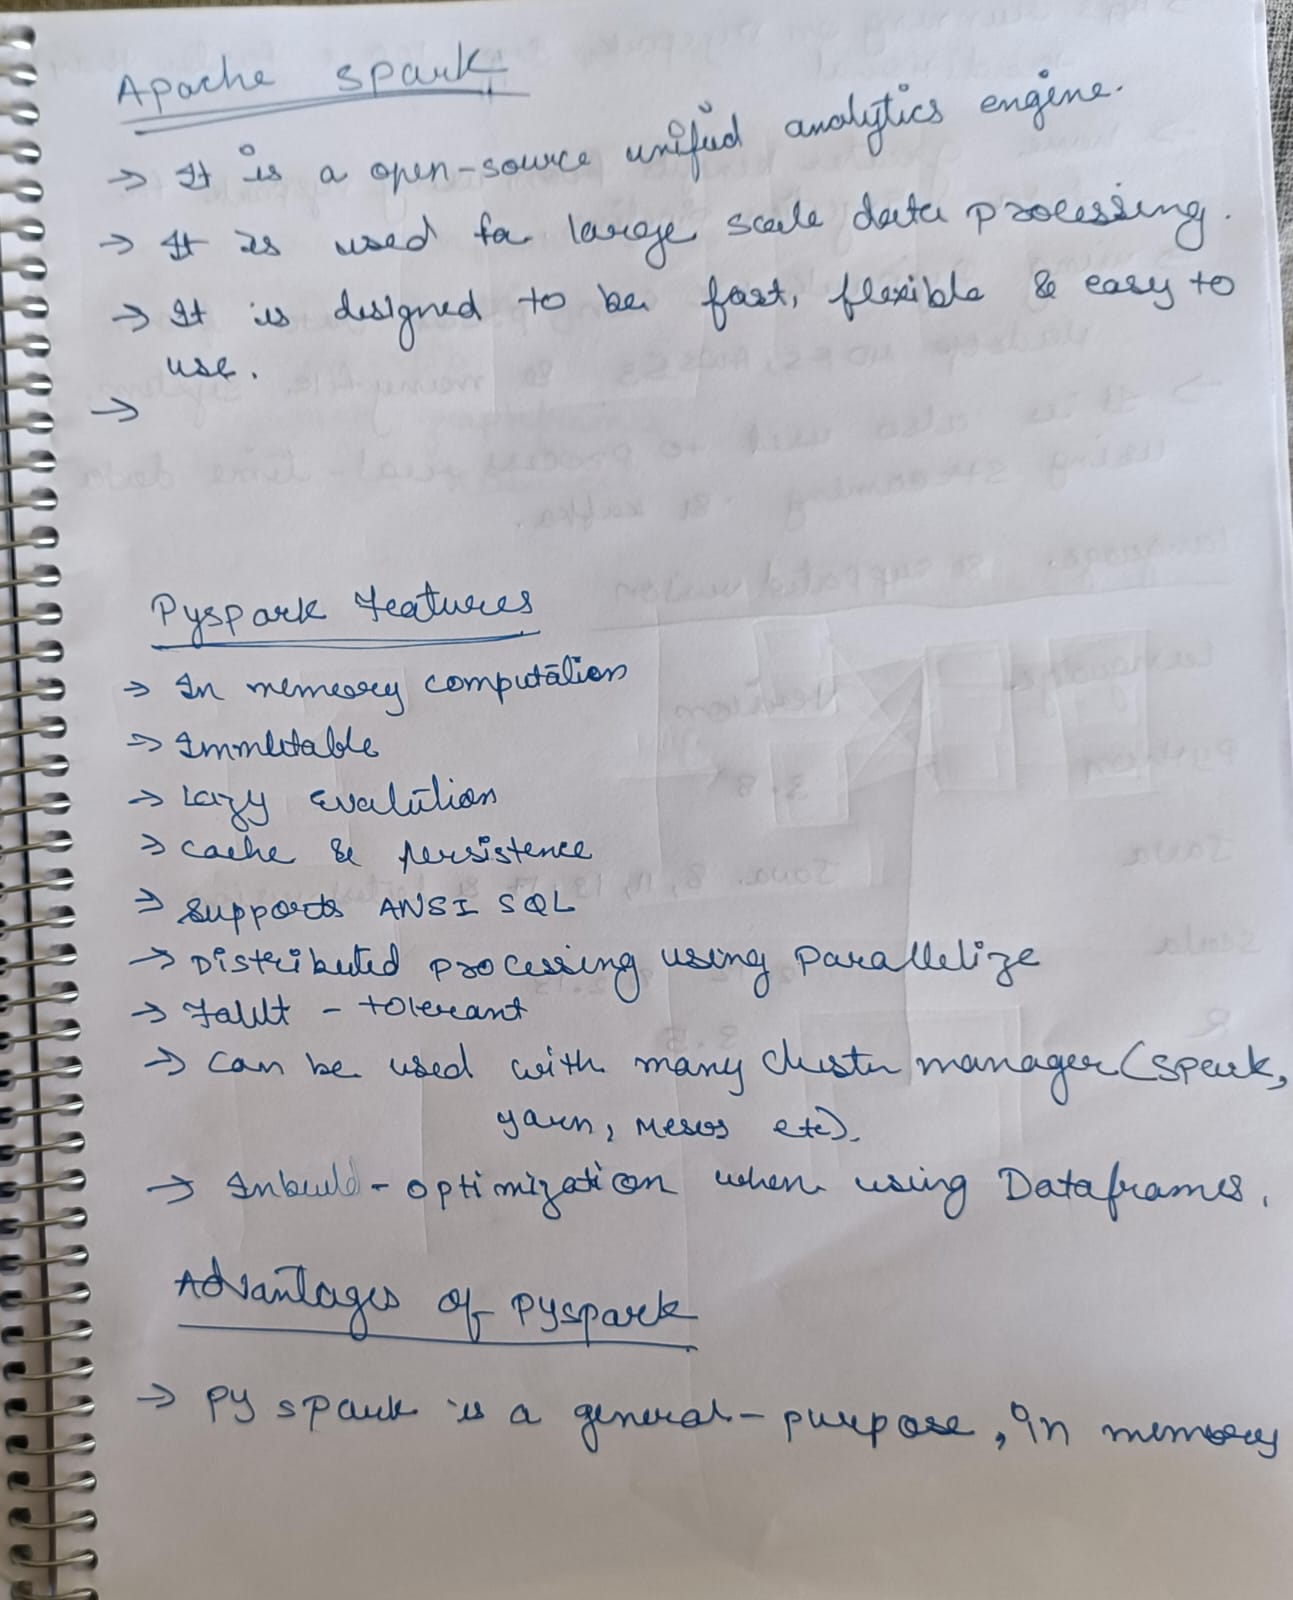 Apache Spark
→ It is a open-source unified analytics engine.
→ It is used for large scale data processing.
→ It is designed to be fast, flexible & easy to
use.
→
Pyspark Features
→ In memory computation
→ Immutable
→ Lazy Evalution
→ Cache & persistence
→ Supports ANSI SQL
→ Distributed processing using parallelize
→ Fault - tolerant
→ Can be used with many cluster manager (Spark,
yarn, Mesos etc).
→ Inbuild - optimization when using Dataframes.
Advantages of Pyspark
→ Py spark is a general - purpose, in memory